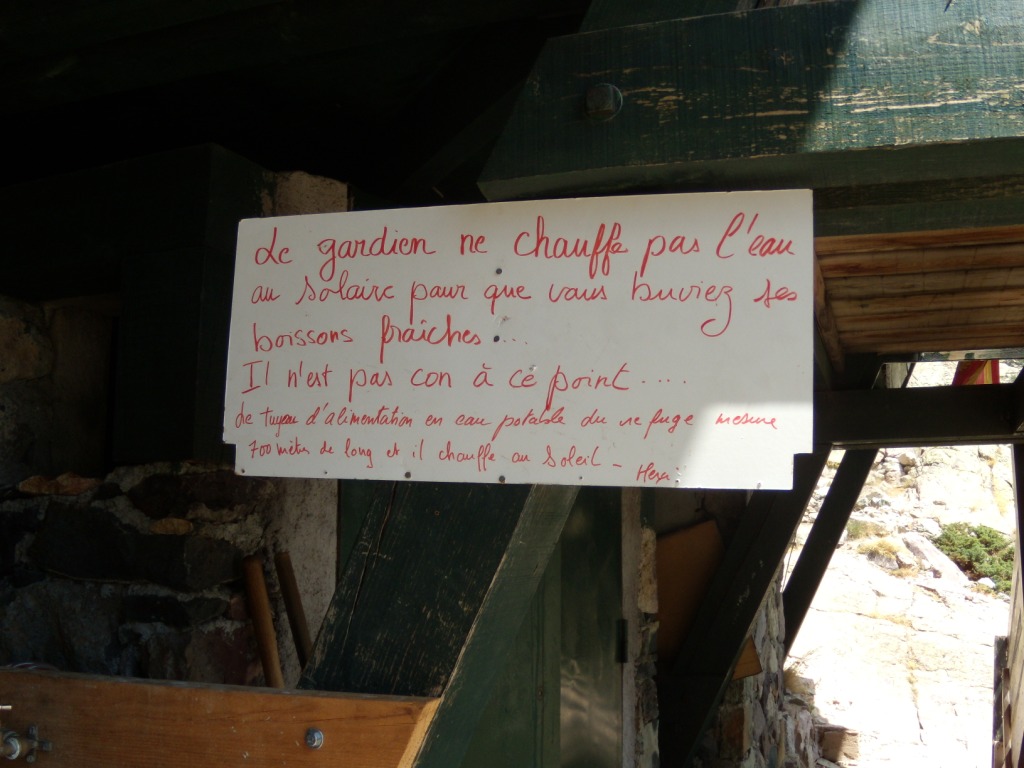 Le gardien ne chauffe pas l'eau
au solaire pour que vous buviez ses
boissons fraîches...
Il n'est pas con à ce point....
Le tuyau d'alimentation en eau potable du refuge mesure
700 mètres de long et il chauffe au soleil -